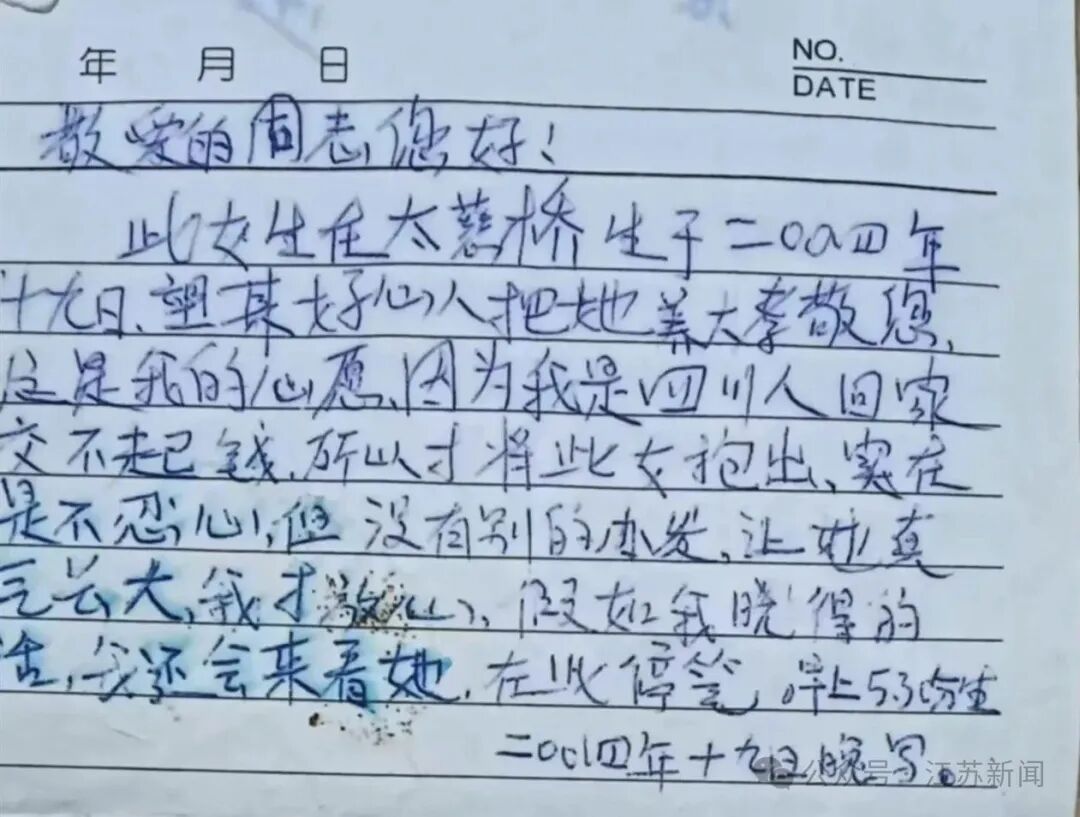 年 月 日
NO.
DATE
敬爱的同志您好!
此女生在太慈桥生于二00四年
十九日、望其好心人把她养大孝敬您,
这是我的心愿、因为我是四川人回家
交不起钱,所以才将此女抱出、实在
是不忍心,但没有别的办发,让她真
长大,我才放心、假如我晓得的
话,我还会来看她,在此停笔,早上530分生
二00四年十九日晚写。
公众号·江苏新闻